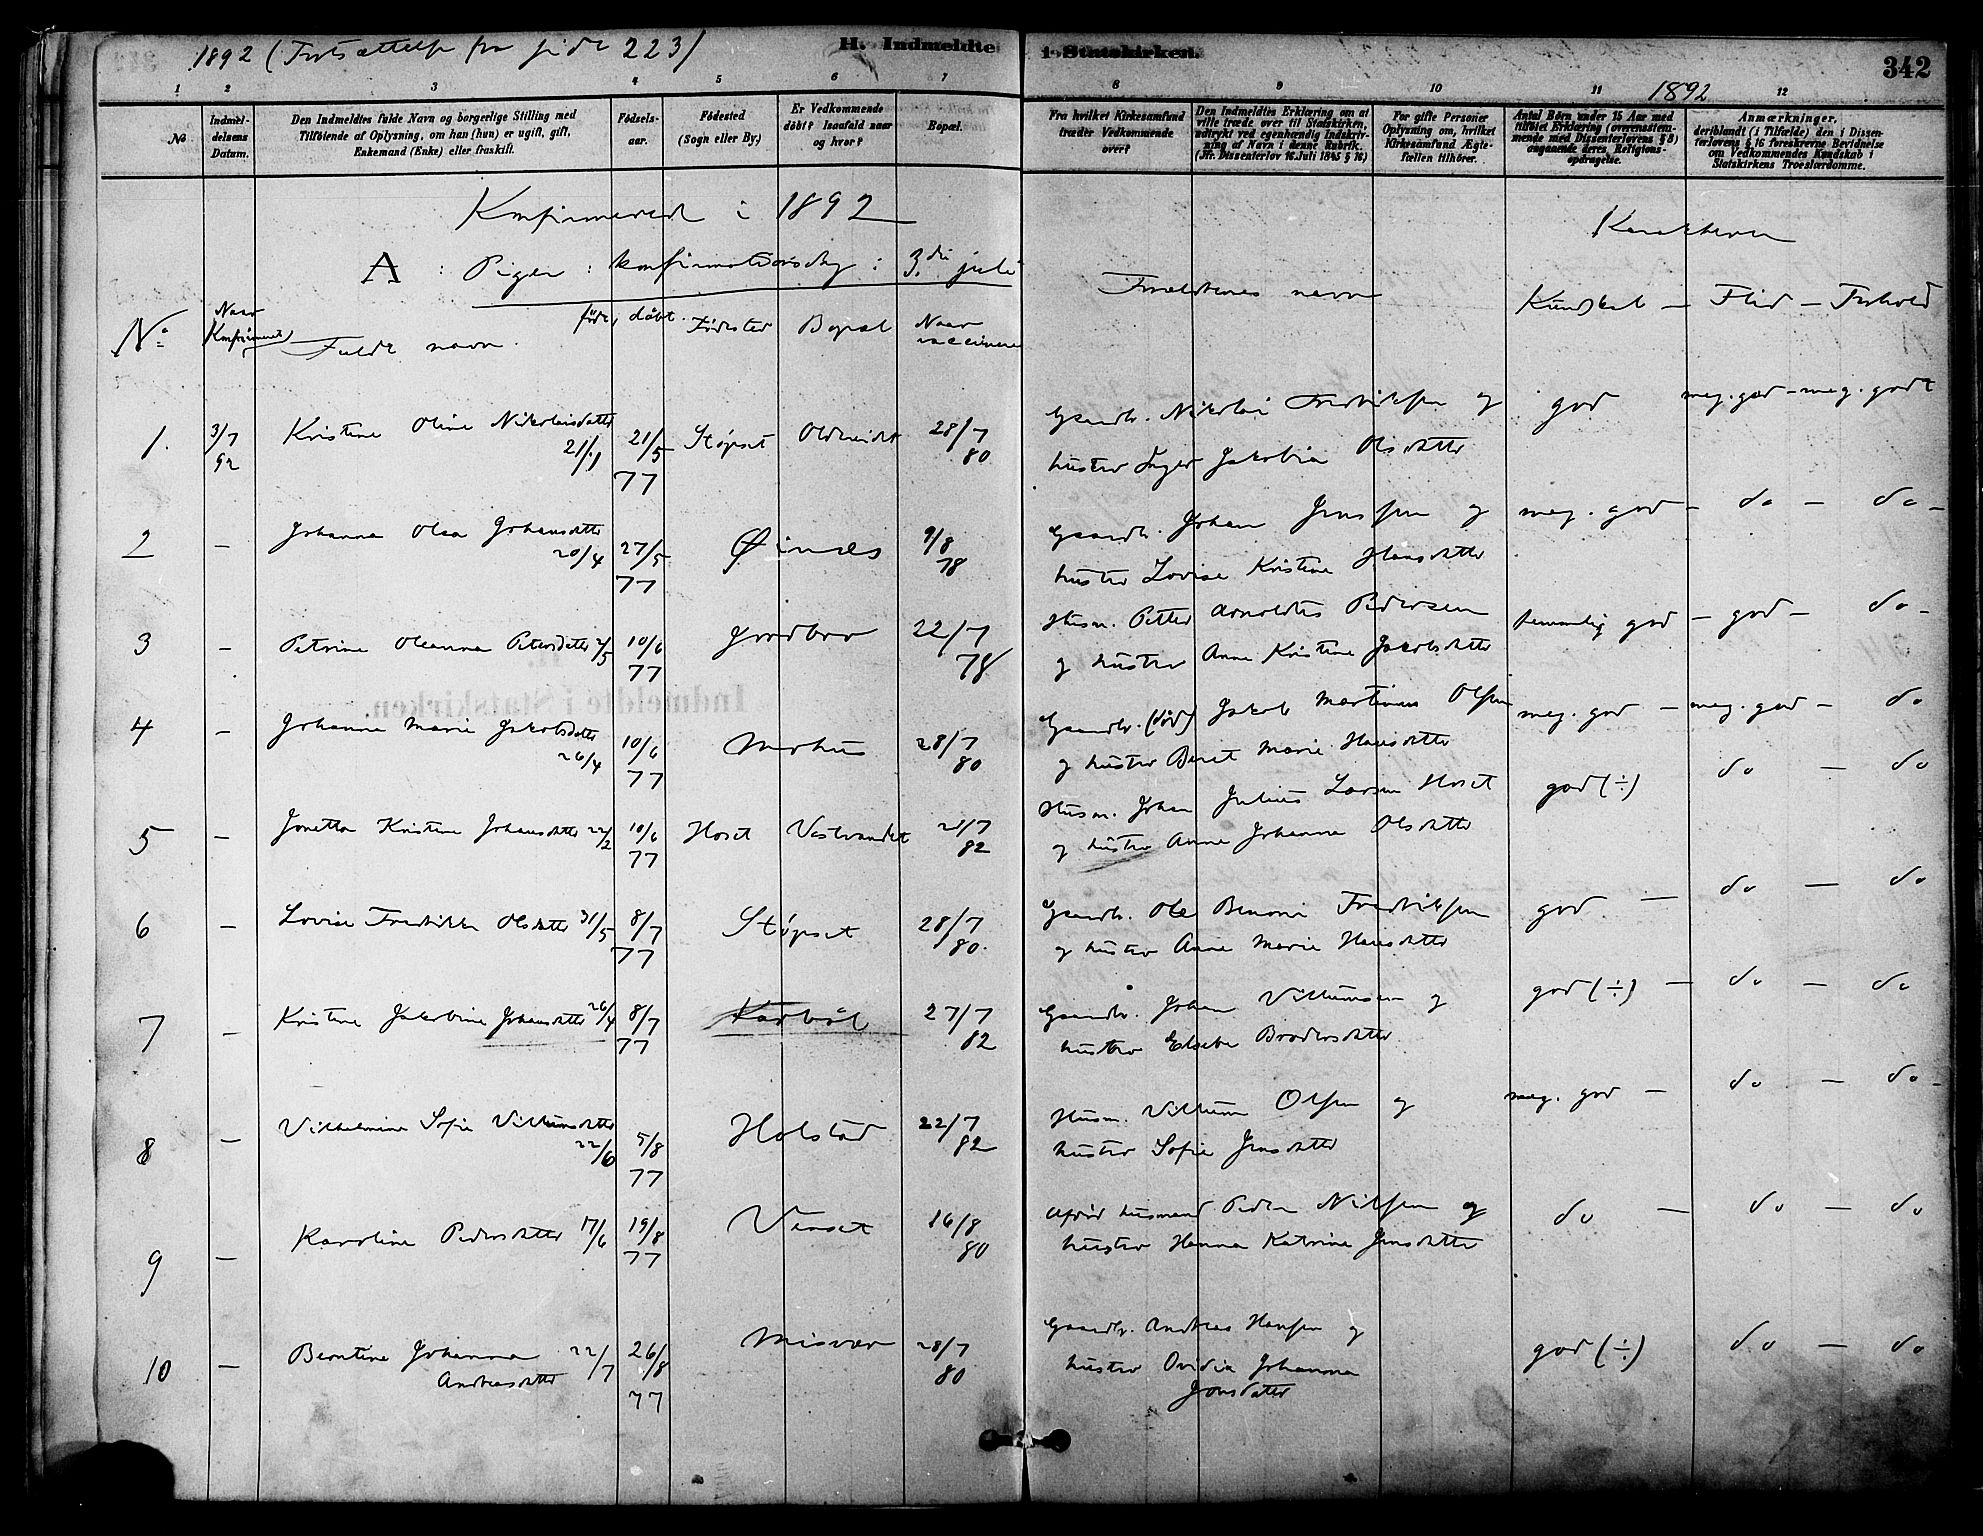 1892 (Fortsættelse fra side 223)
H. Indmeldte i Statskirken.
342
1892
1 2 3 4 5 6 7 8 9 10 11 12
№
Indmel-
delsens
Datum.
Den Indmeldtes fulde Navn og borgerlige Stilling med
Tilføiende af Oplysning, om han (hun) er ugift, gift,
Enkemand (Enke) eller fraskilt.
Fødsels-
aar.
Fødested
(Sogn eller By.)
Er Vedkommende
døbt? Isaafald naar
og hvor?
Bopæl.
Fra hvilket Kirkesamfund
træder Vedkommende
over?
Den Indmeldtes Erklæring om at
ville træde over til Statskirken,
udtrykt ved egenhændig Indskriv-
ning af Navn i denne Rubrik.
(Jfr. Dissenterlov 16 Juli 1845 § 16)
For gifte Personer
Oplysning om, hvilket
Kirkesamfund Ægte-
fællen tilhører.
Antal Børn under 15 Aar med
tilføiet Erklæring (overensstem-
mende med Dissenterlovens § 8)
angaaende deres Religions-
opdragelse.
Anmærkninger,
deriblandt (i Tilfælde) den i Dissen-
terlovens § 16 foreskrevne Bevidnelse
om Vedkommendes Kundskab i
Statskirkens Troeslærdomme.
Konfirmerede i 1892
A : Piger : konfirmationsdag : 3die juli
Karakterer
No
Naar Konfirmeret
Fulde navn
født, døbt.
Fødested
Bopæl
Naar vaccineret
Forældrenes navn
Kundskab — Flid — Forhold
1. 3/7 92 Kristine Oline Nikolaisdatter 21/5 77 Støpset 28/7 80 Gaardbr. Nikolai Fredriksen og god meg. god — meg. godt
hustru Inger Jakobia Olsdatter
2 — Johanna Olea Johansdatter 20/4 27/5 77 Øines 9/8 78 Gaardbr. Johan Jensen og meg. god — do — do —
hustru Lovise Kristine Hansdatter
3 — Petrine Oleanna Petersdatter 2/5 10/6 77 Jordbro 22/7 78 Husm. Petter Arnoldus Pedersen temmelig god — god — do —
og hustru Anne Kristine Jakobsdatter
4 — Johanna Marie Jakobsdatter 26/4 10/6 77 28/7 80 Gaardbr. (død) Jakob Martinus Olsen meg. god — meg. god — do
og hustru Beret Marie Hansdatter
5 — Jonetta Kristine Johansdatter 22/2 10/6 77 Hoset Vestvandet 82 Husm. Johan Julius Larsen Hoset god (÷) do — do
og hustru Anne Johanna Olsdatter
6 — Lovise Fredrikke Olsdatter 31/5 8/7 77 Støpset 28/7 80. Gaardbr. Ole Benoni Fredriksen god — do — do
og hustru Anne Marie Hansdatter
7 — Kristine Jakobine Johansdatter 26/4 8/7 77 Karbøl 27/7 82 Gaardbr. Johan Villumsen og god (÷) — do — do
hustru Elsebe Brodersdatter
8 — Vilhelmine Sofie Villumsdatter 22/6 5/8 77 Holstad 22/7 82 Husm. Villum Olsen og meg. god — do — do —
hustru Sofie Jensdatter
9 — Karoline Pedersdatter 17/6 19/8 77 Venset 16/8 80 Afdød husmand Peder Nilsen og do — do — do
hustru Hanna Katrine Jensdatter
10 — Berntine Johanna 22/7 26/8 77 Misvær 28/7 80 Gaardbr. Andreas Hansen og god (÷) do — do
Andreasdatter
hustru Ovidia Johanna
Jonsdatter